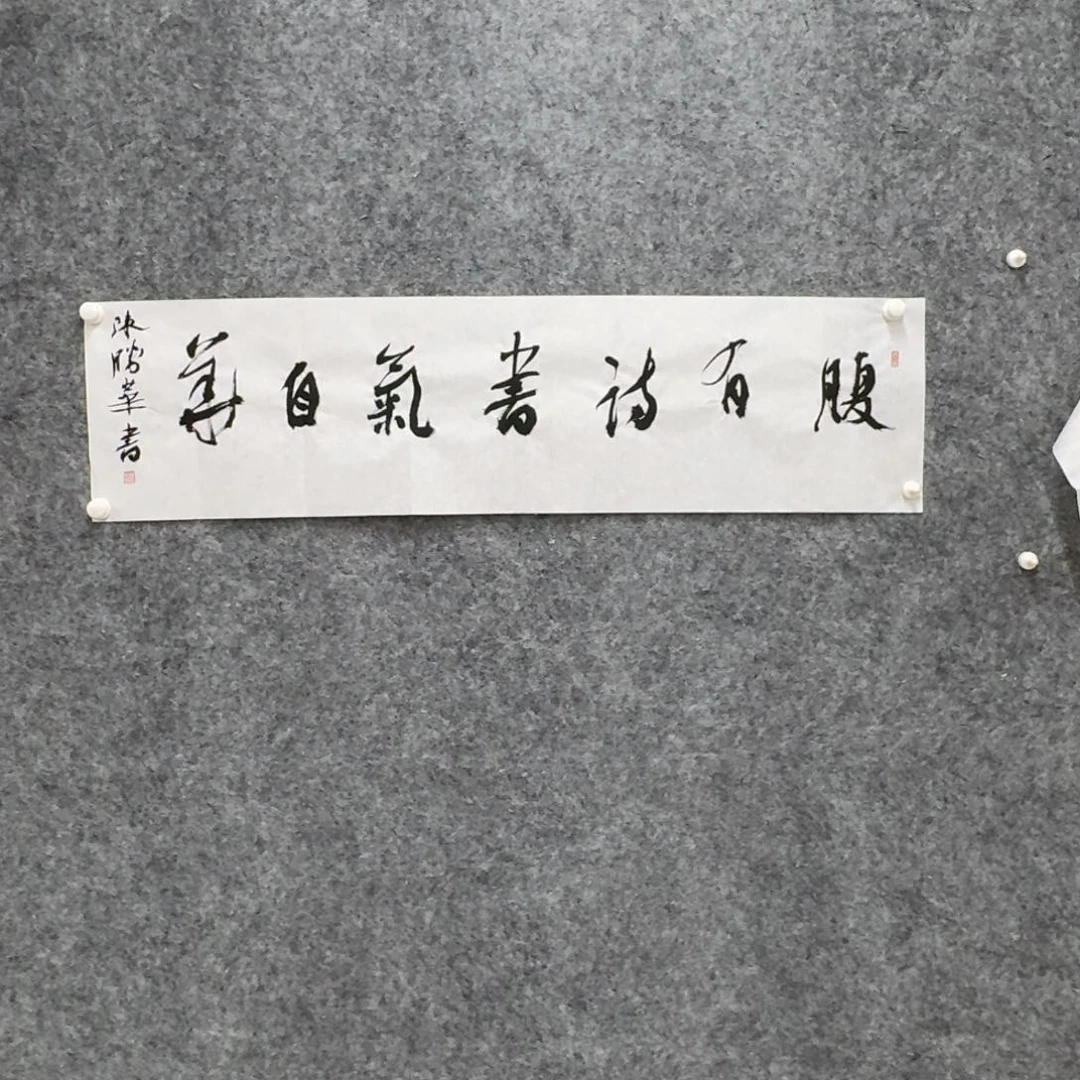 腹有詩書氣自華
陳勝華書